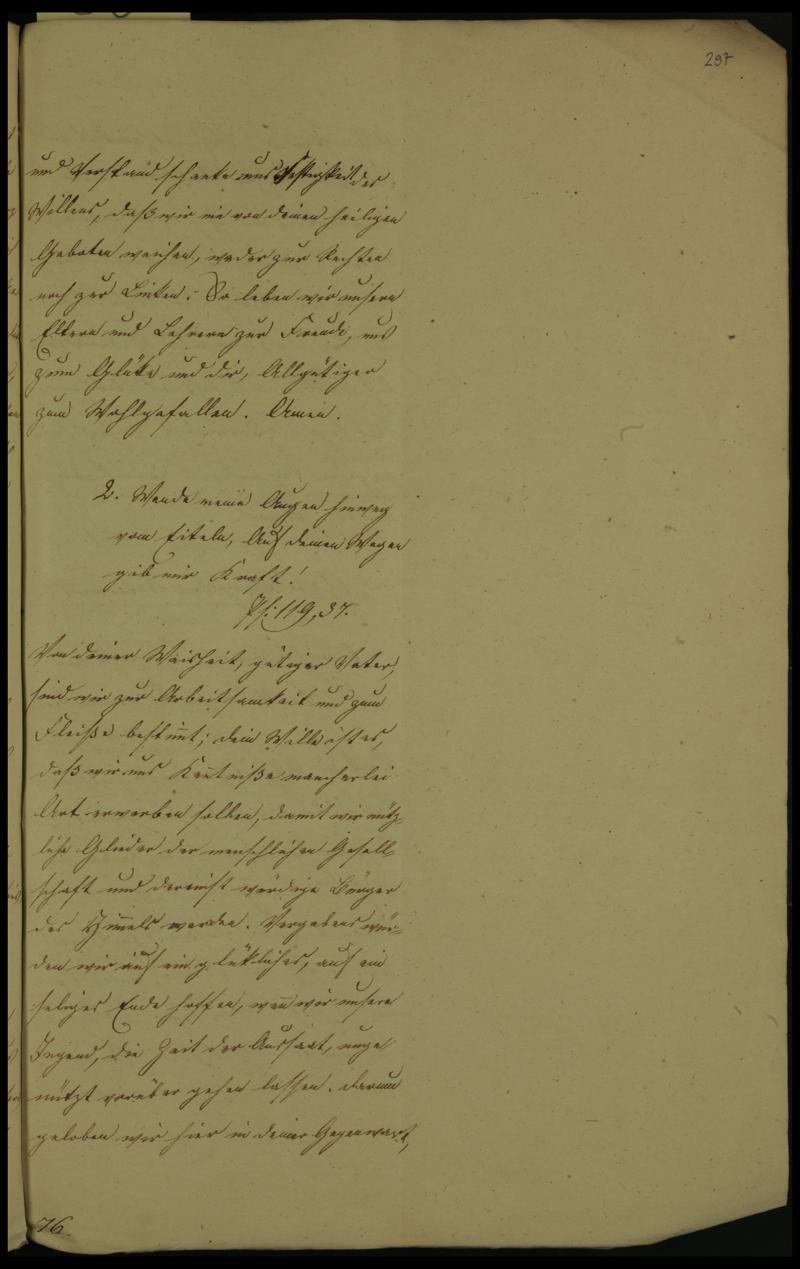 297
und Verstand schenke uns Festigkeit des
Willens, daß wir nie von deinen heiligen
Geboten weichen, weder zur Rechten
noch zur Linken. So leben wir unsern
Eltern und Lehrern zur Freude, uns
zum Glüke und dir, Allgütiger
zum Wohlgefallen. Amen.
2. Wende meine Augen hinweg
vom Eiteln, Auf deinen Wegen
gib mir Kraft!
Ps: 119, 37.
Von deiner Weisheit, gütiger Vater,
sind wir zur Arbeitsamkeit und zum
Fleiße bestim̅t; dein Wille ist es,
daß wir uns Ken̅tniße mancherlei
Art erwerben sollen, damit wir nütz-
liche Glieder der menschlichen Gesell-
schaft und dereinst würdige Bürger
des Him̅els werden. Vergebens wür-
den wir auf ein glükliches, auf ein
seliges Ende hoffen, wen̅ wir unsere
Jugend, die Zeit der Aussaat, unge
nützt vorüber gehen lassen. Darum
geloben wir hier in deiner Gegenwart,
76.